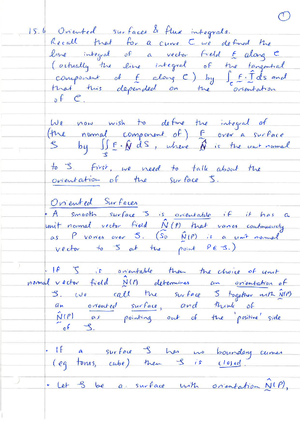 1
15.6 Oriented surfaces & flux integrals.
Recall that for a curve C we defined the
line integral of a vector field F along C
(actually the line integral of the tangential
component of F along C) by ∫_C F·T̂ ds and
that this depended on the orientation
of C.
We now wish to define the integral of
(the normal component of) F over a surface
S by ∬_S F·N̂ dS, where N̂ is the unit normal
to S. First, we need to talk about the
orientation of the surface S.
Oriented Surfaces
• A smooth surface S is orientable if it has a
unit normal vector field N̂(P) that varies continuously
as P varies over S. (So N̂(P) is a unit normal
vector to S at the point P∈S.)
• If S is orientable then the choice of unit
normal vector field N̂(P) determines an orientation of
S. We call the surface S together with N̂(P)
an oriented surface, and think of
N̂(P) as pointing out of the 'positive' side
of S.
• If a surface S has no boundary curves
(eg torus, cube) then S is closed.
• Let S be a surface with orientation N̂(P),